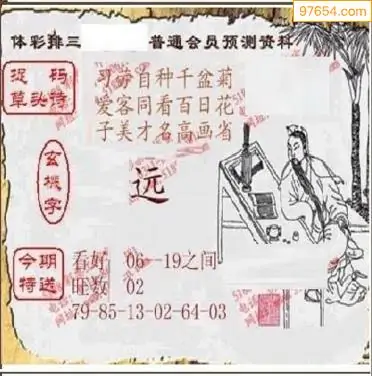 97654.com
体彩排三 普通会员预测资料
捉码
草头诗
自种千盆菊
爱客同看百日花
于美才名高画省
玄機字
远
今期
特送
看好 06--19之间
旺数 02
79-85-13-02-64-03